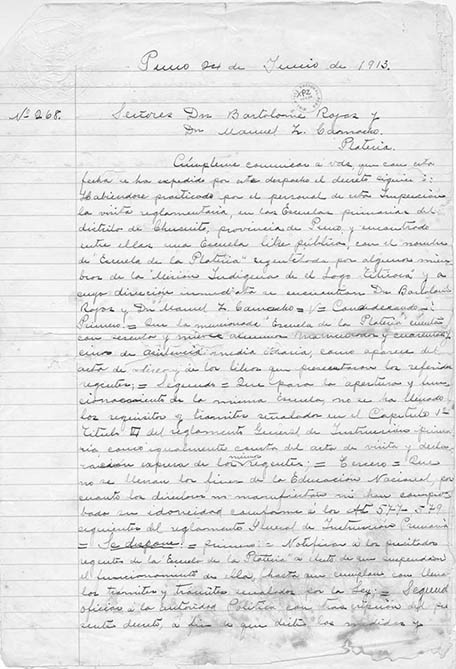 Puno 24 de Junio de 1913.
No 268.
Señores Dn Bartolomé Rojas y
Dn Manuel Z. Camacho.
Plateria.
Cúmpleme comunicar á vds. que con esta
fecha se ha expedido por este despacho el decreto siguiente:
Habiéndose practicado por el personal de esta Inspección
la visita reglamentaria, en las Escuelas primarias del
distrito de Chucuito, provincia de Puno, y encontrado
entre ellas una Escuela libre pública, con el nombre
de "Escuela de la Plateria" regentada por algunos miem
bros de la "Mision Indigena de el Lago Titicaca" y á
cuya direccion inmediata se encuentran Dn Bartolomé
Rojas y Dn Manuel Z. Camacho = V = Considerando =
Primero = Que la mencionada "Escuela de la Plateria" cuenta
con alumnos matriculados y cuarenta y
cinco de asistencia media diaria, como aparece del
acta de y de los libros que presentaron los referidos
regentes; = Segundo = Que para la apertura y fun
cionamiento de la misma Escuela, no se ha llenado
los requisitos y tramites señalados en el Capítulo 1o
Titulo del reglamento General de Instruccion prima
ria como igualmente consta del acta de visita y decla
racion expresa de los mismos regentes; = Tercero = Que
no se llenan los fines de la Educación Nacional, por
cuanto los directores ni manifiestan ni han compro
bado su idoneidad conforme á los Art 577 579
siguientes del reglamento General de Instruccion Primaria
= Se dispone: = primero: = Notificar á los precitados
regentes de la Escuela de la Plateria" á efecto de que suspendan
el funcionamiento de ella, hasta que cumplan con llenar
los tramites y señalados por la Ley: = Segundo
oficiar á la autoridad Politica con trascripcion del pre
sente decreto, a fin de que dicte las medidas y